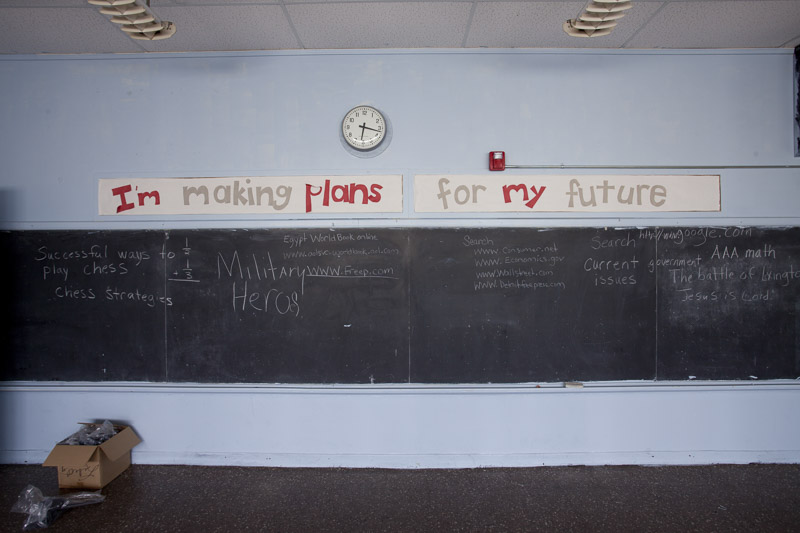 I'm making plans for my future
Successful ways to
play chess
Chess strategies
1/2
+ 1/3
Military
Heros
Egypt World Book online
www.Freep.com
Search
www.Consumer.net
www.Economics.gov
www.Detroitfreepress.com
Search http://www.google.com
Current government
issues
AAA math
The battle of
Jesus is Lord